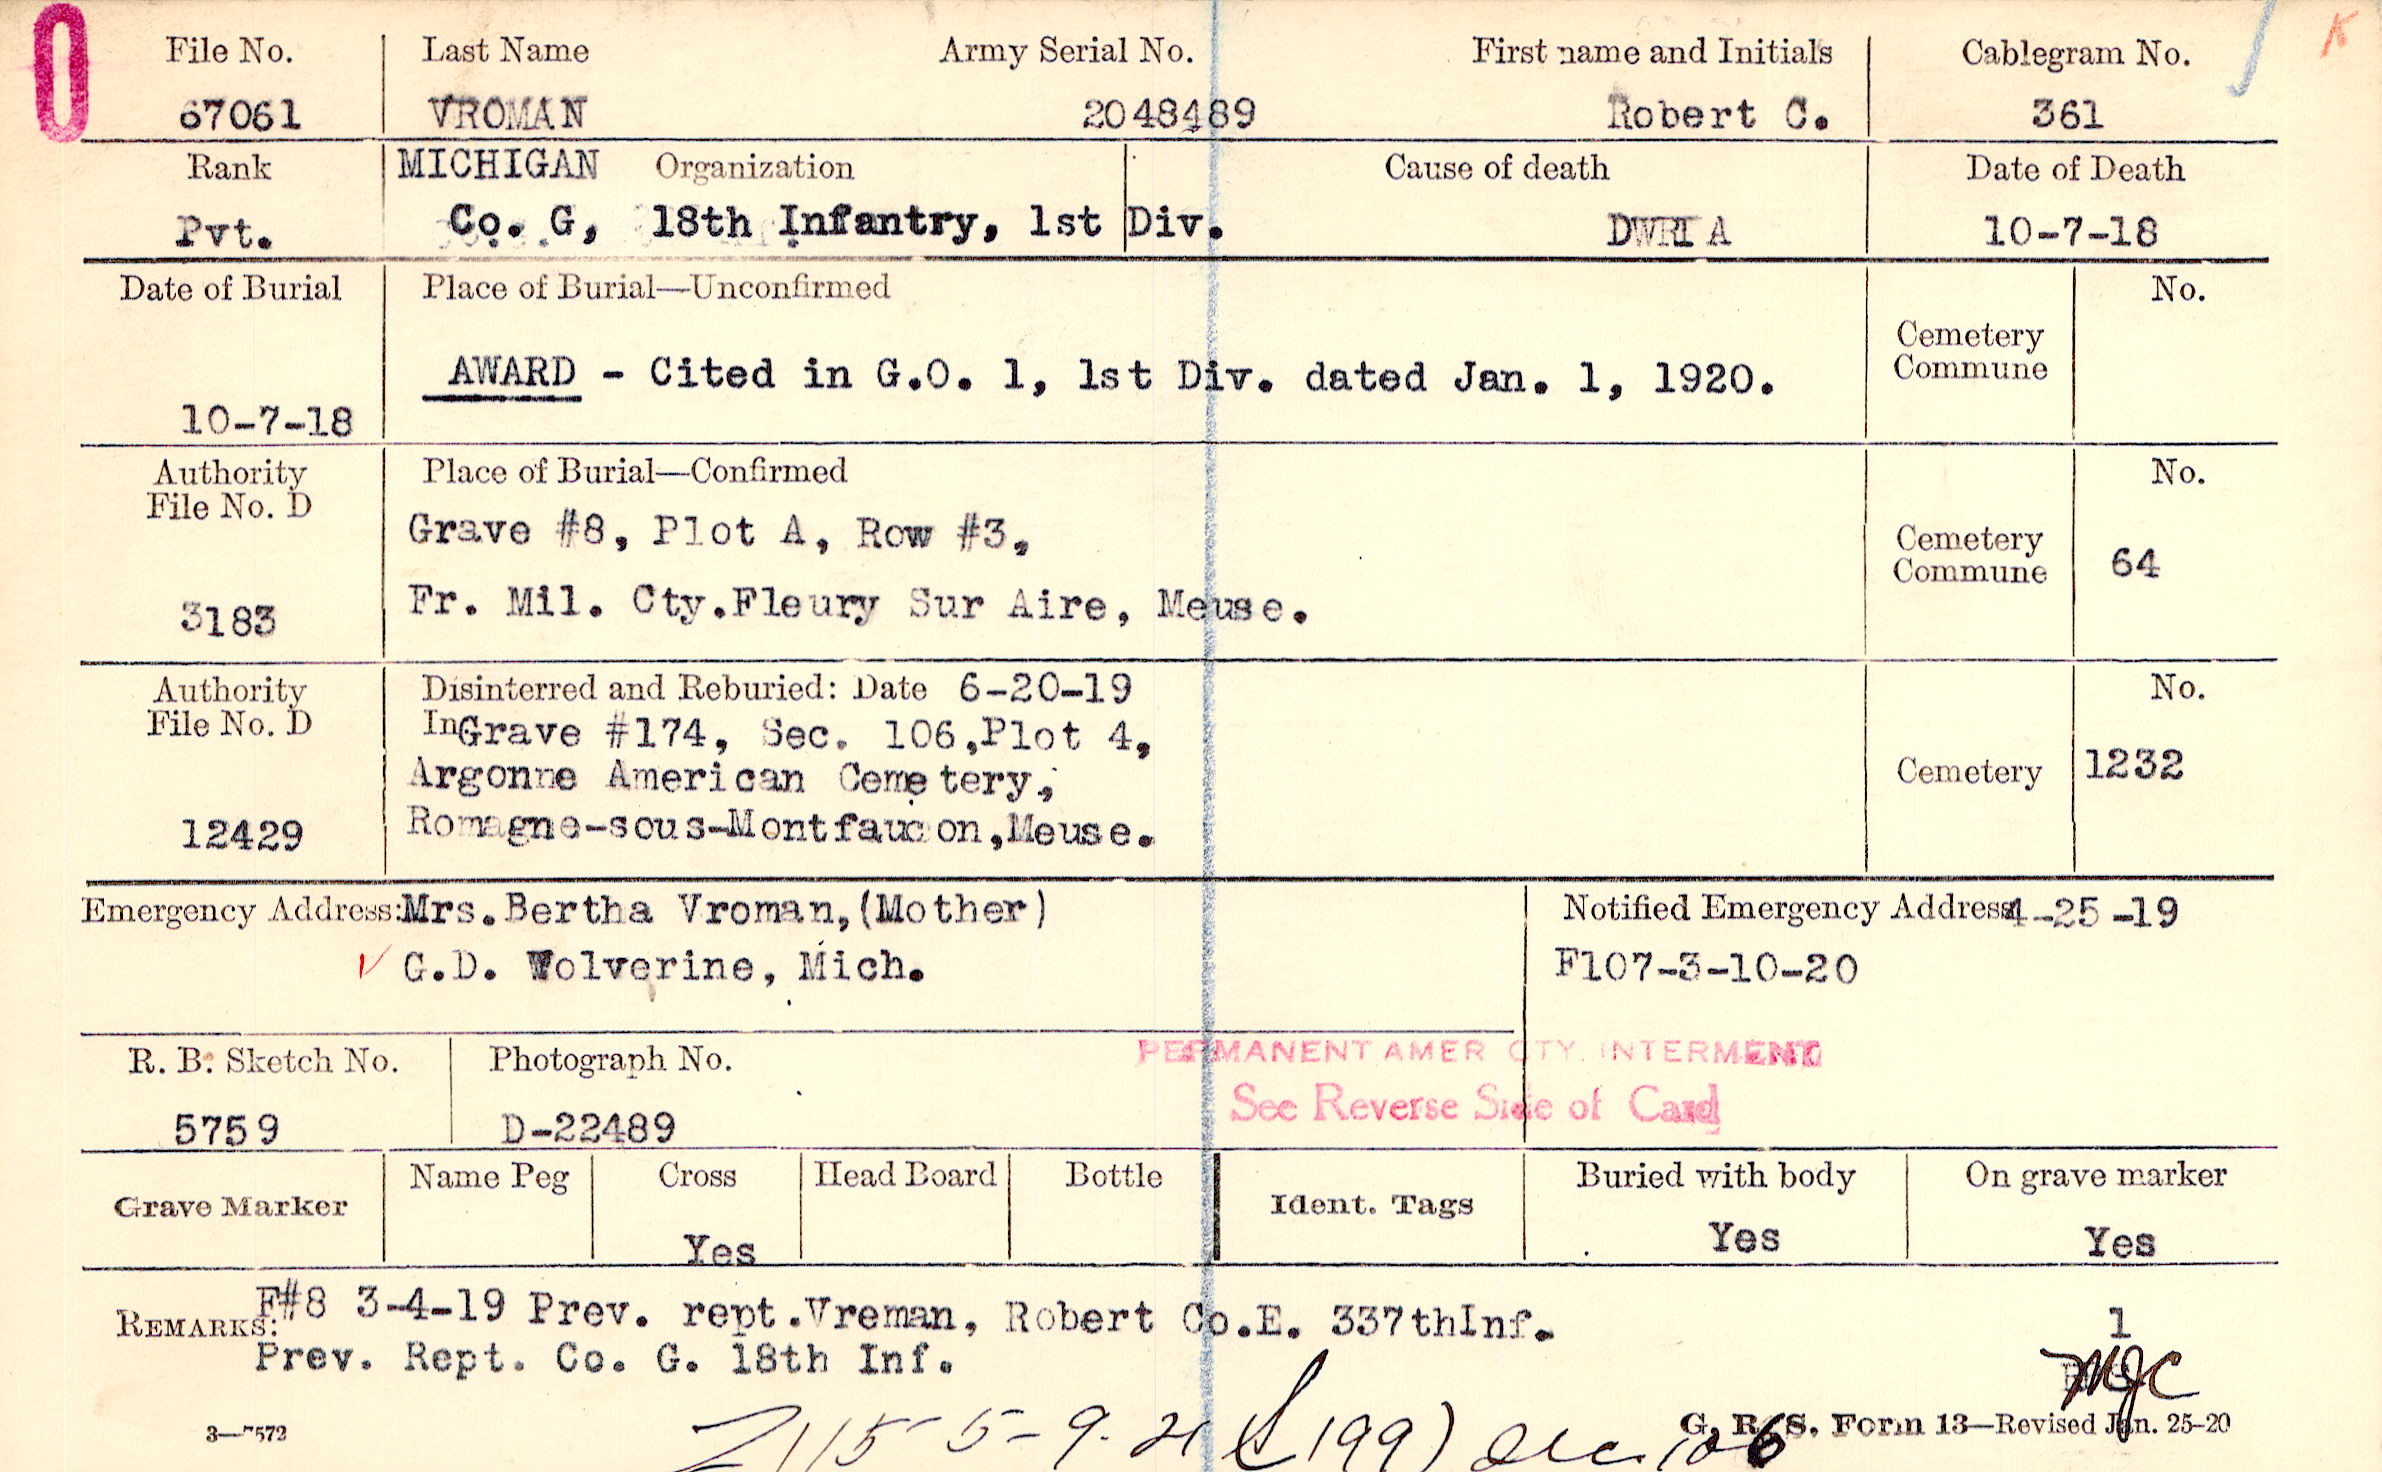 File No. Last Name Army Serial No. First name and Initials Cablegram No. K
67061 VROMAN 2048489 Robert C. 361
Rank MICHIGAN Organization Cause of death Date of Death
Pvt. Co. G, 18th Infantry, 1st Div. DWRIA 10-7-18
Date of Burial Place of Burial—Unconfirmed No.
Cemetery
Commune
AWARD - Cited in G.O. 1, 1st Div. dated Jan. 1, 1920.
10-7-18
Authority Place of Burial—Confirmed No.
File No. D
Grave #8, Plot A, Row #3,
Cemetery
Commune 64
3183 Fr. Mil. Cty.Fleury Sur Aire, Meuse.
Authority Disinterred and Reburied: Date 6-20-19 No.
File No. D In Grave #174, Sec. 106,Plot 4,
Argonne American Cemetery, Cemetery 1232
12429 Romagne-sous-Montfaucon,Meuse.
Emergency Address: Mrs.Bertha Vroman,(Mother) Notified Emergency Address 4-25-19
G.D. Wolverine, Mich. F107-3-10-20
PERMANENT AMER CTY. INTERMENT
R. B. Sketch No. Photograph No.
See Reverse Side of Card
5759 D-22489
Grave Marker Name Peg Cross Head Board Bottle Ident. Tags Buried with body On grave marker
Yes Yes Yes
REMARKS: F#8 3-4-19 Prev. rept.Vreman, Robert Co.E. 337thInf. 1
Prev. Rept. Co. G. 18th Inf.
MJC
3—7572 5-9-21 (199) G. R. S. Form 13—Revised Jan. 25-20